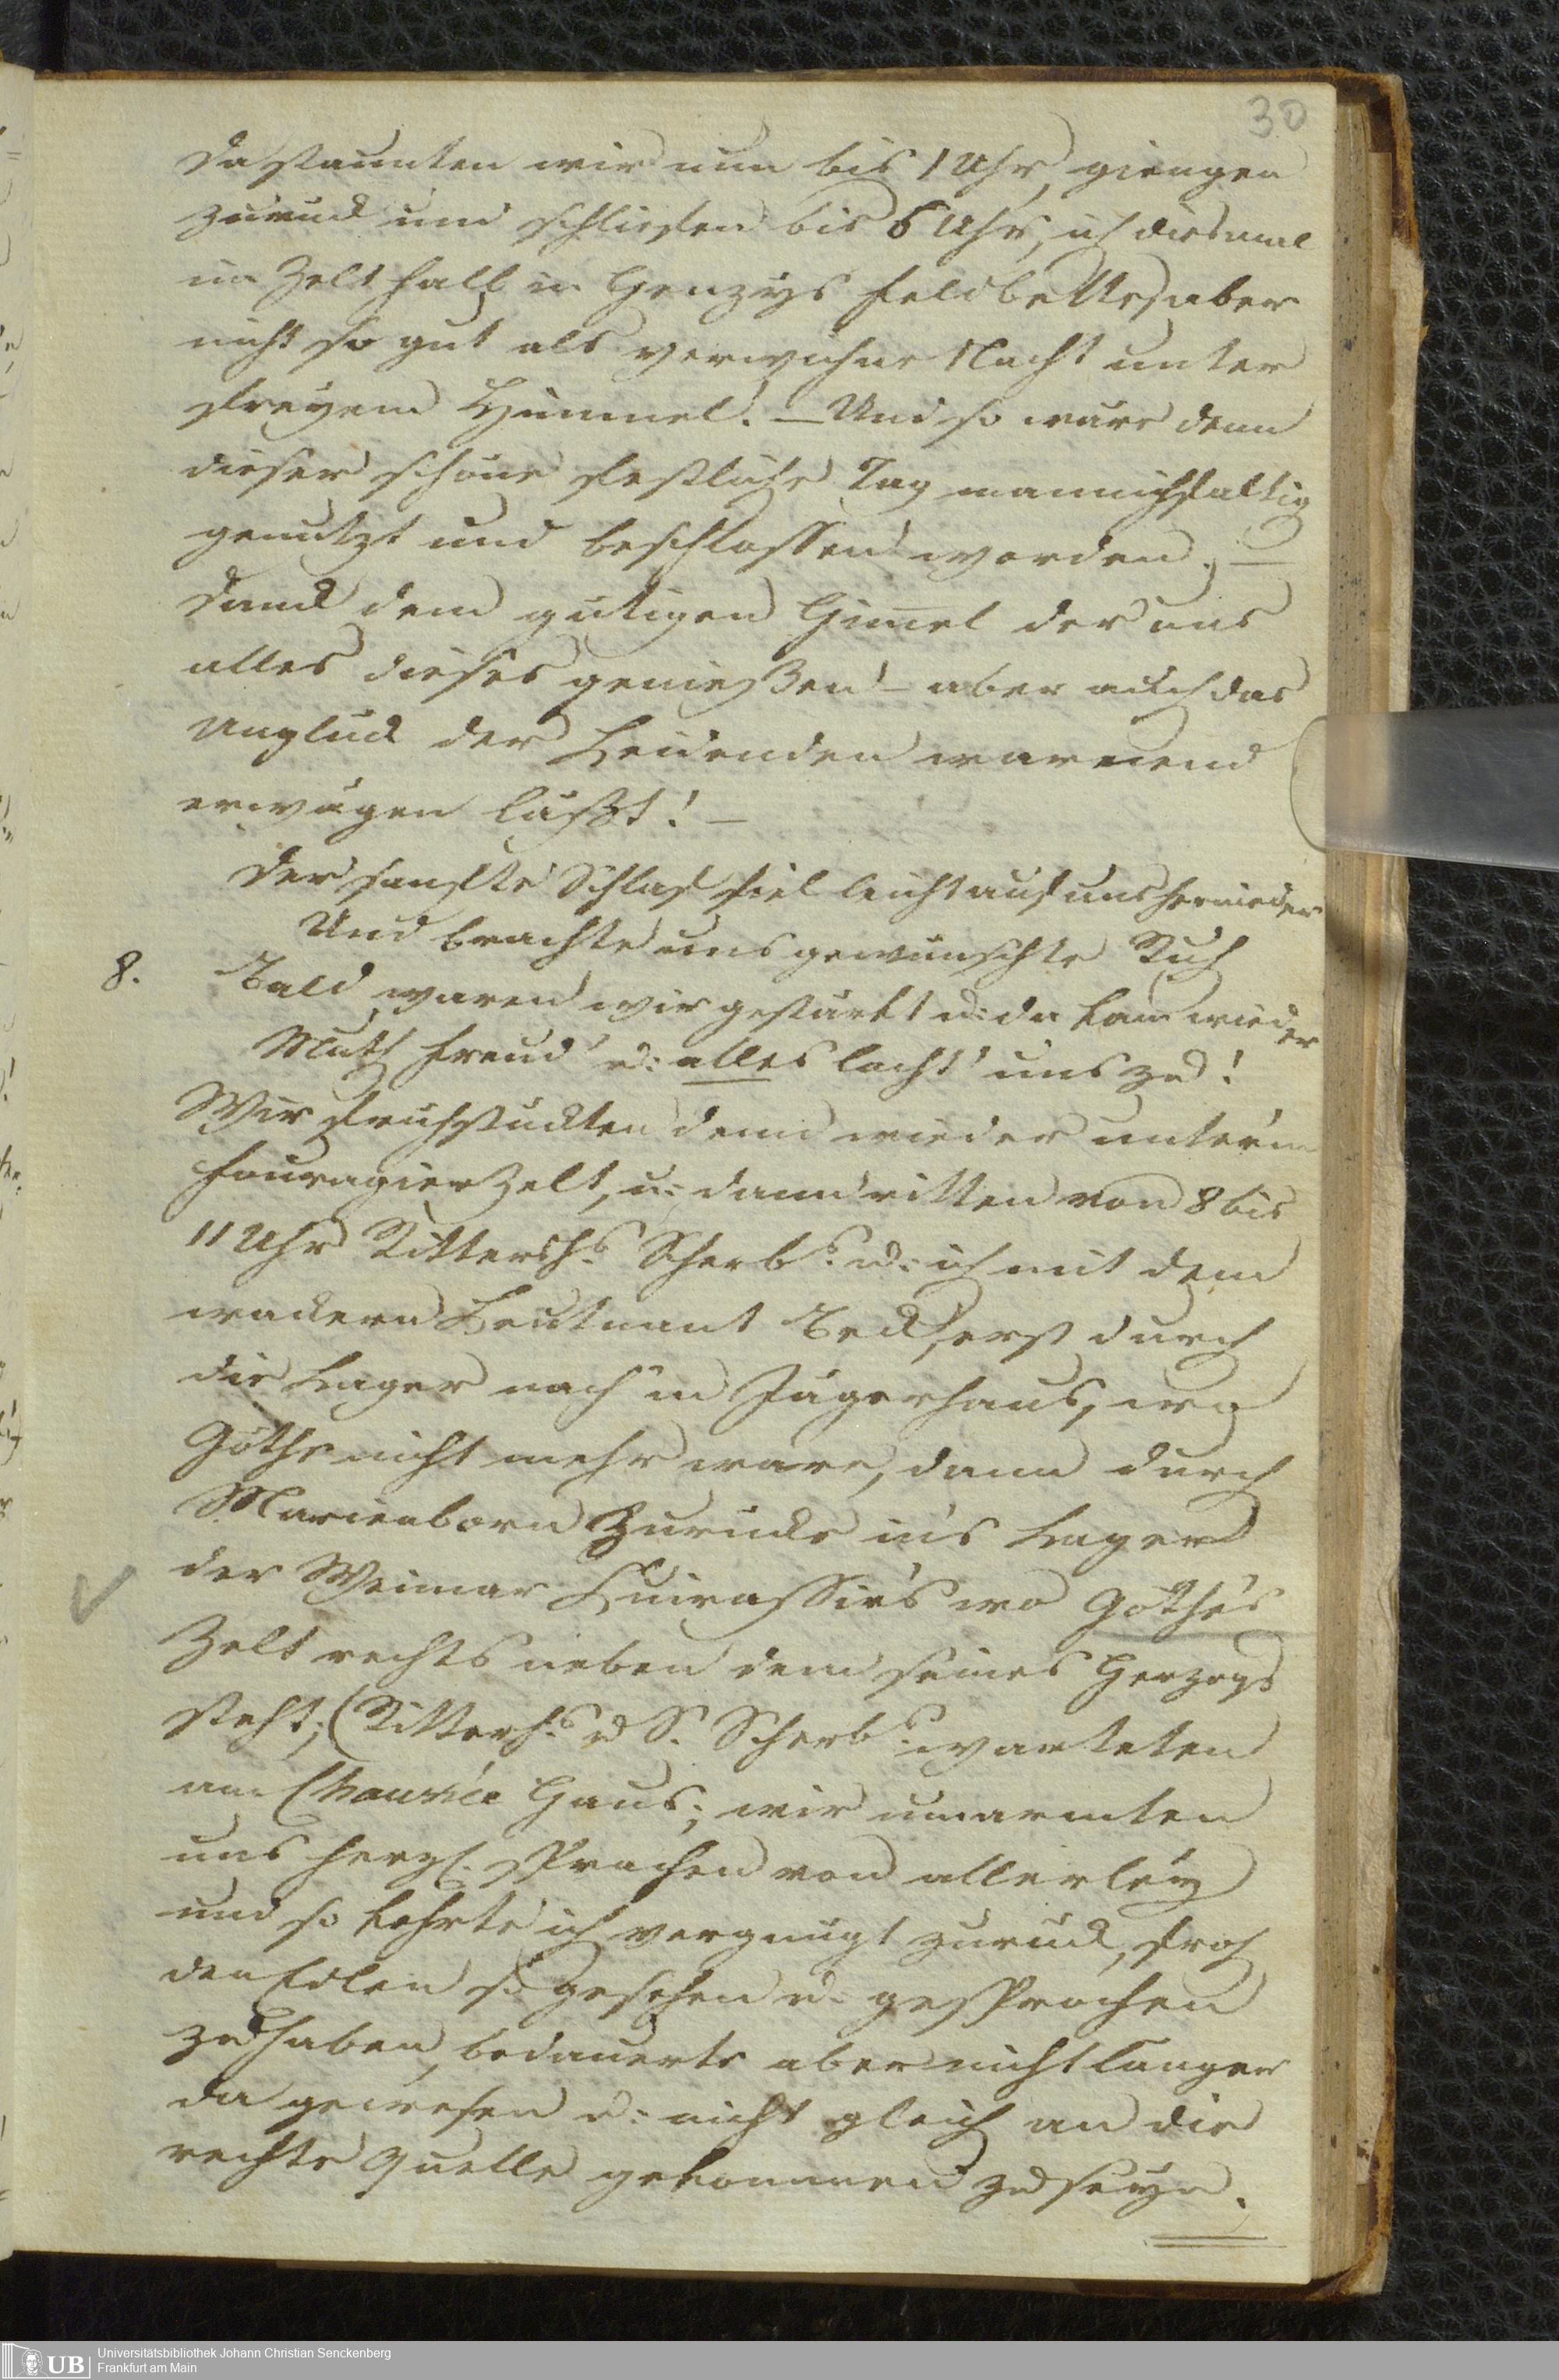 30
da staunten wir nun bis 1 Uhr, giengen
zurück und schliefen bis 6 Uhr, ich diesmal
im Zelt halb in Genzijs Feldbette, aber
nicht so gut als verwichne Nacht unter
freyem Himmel. — Und so ware denn
dieser schöne festliche Tag mannichfaltig
genutzt und beschlossen worden. —
Dank dem gütigen Himel der uns
alles dieses genießen — aber auch das
Unglück der Leidenden warnend
erwägen läßt! —
Der sanfte Schlaf fiel leicht auf uns hernieder
Und brachte uns gewünschte Ruh
8. Bald waren wir gestärkt u: da kam wieder
Muth Freud' u: alles lacht' uns zu!
Wir frühstückten denn wieder unter'm
Fouragier Zelt, u: dann ritten von 8 bis
11 Uhr Rittersh: Scherb: u: ich mit dem
wackern Leutnant Beck, erst durch
die Lager nach'm Jägerhaus, wo
Göthe nicht mehr ware, dann durch
Marienborn Zurücke in's Lager
der Weimar Kuirassirs wo Göthe's
Zelt rechts neben dem seines Herzogs
steht; (Rittersh: u S. Scherb: warteten
am Chaussée Haus; wir umarmten
uns herzl. sprachen von allerley
und so kehrte ich vergnügt zurück, froh
den Edlen so gesehen u: gesprochen
zu haben, bedauerte aber nicht länger
da gewesen u: nicht gleich an die
rechte Quelle gekommen zu seyn.
Universitätsbibliothek Johann Christian Senckenberg
UB Frankfurt am Main